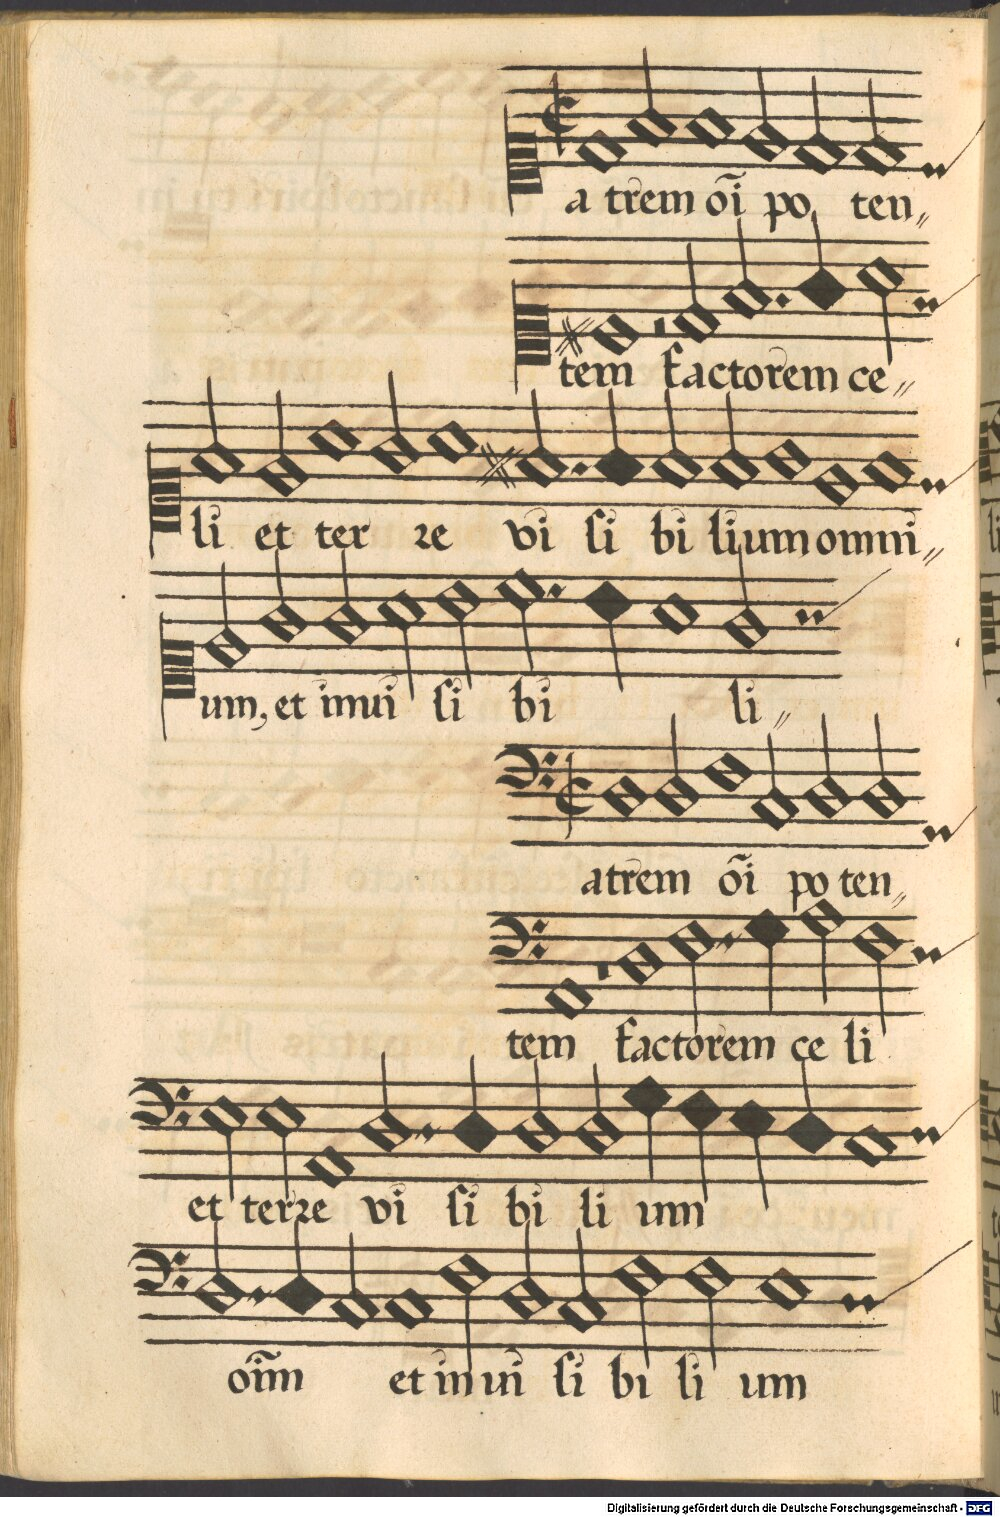 a trem oı̃ po ten„
tem factorem ce„
li et ter re vi si bi lium omni„
um, et invi si bi li„
atrem oı̃ po ten„
tem factorem ce li
et terre vi si bi li um
oı̃m et in vi si bi li um
Digitalisierung gefördert durch die Deutsche Forschungsgemeinschaft - DFG